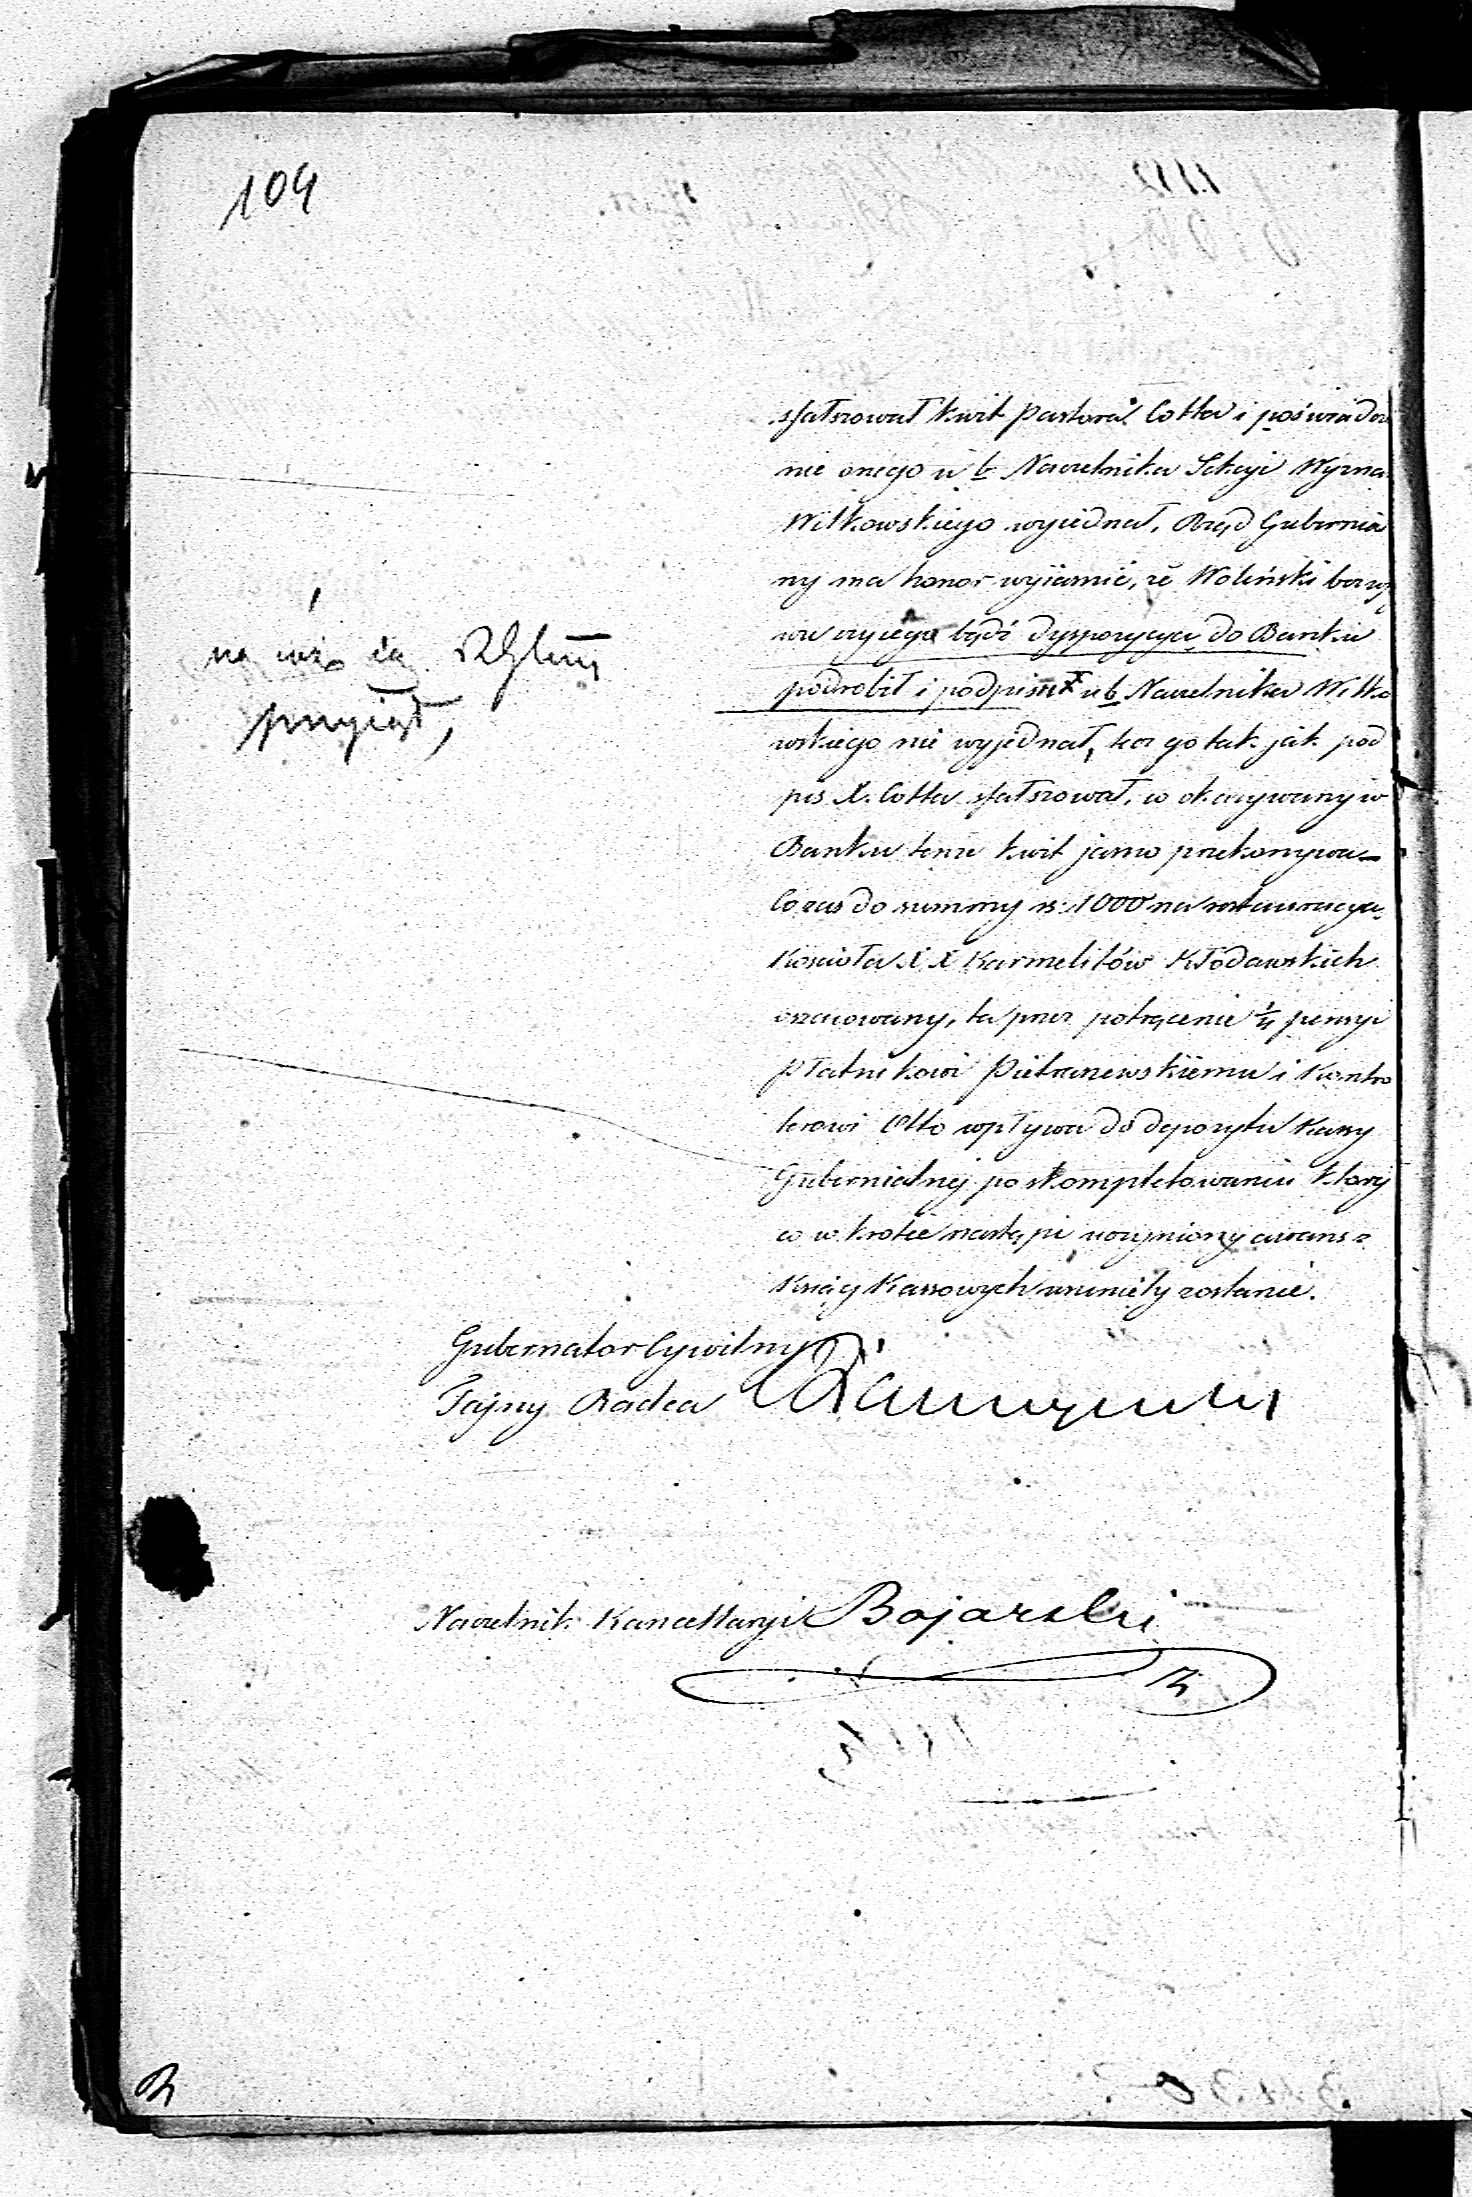 104
sfałszował kwit pastora Cotta i poświadcze
nie onego u b Naczelnika Sekcyi Wyzna
Witkowskiego wyjednał, Rząd Gubernia
ny ma honor wyjasnić, że Woliński bez wp
wu czyjego bądź dyspozycyę do Banku
podrobił i podpisu u b Naczelnika Witko
wskiego nie wyjednał, lecz go tak jak pod
pis X. Cotta sfałszował, o okazywany w
Banku tenże kwit jasno przekonywa
Co zaś do summy rs: 1000 na restauracyą
Kościoła X X Karmelitów Kłodawskich
, ta przez potrącenie 1/4 pensyi
Płatnikowi Pietraszewskiemu i Kontro
lerowi Otto wpływa do depozytu Kassy
Gubernialnej po skompletowaniu któréj
co w krotce nastąpi uczyniony awans z
Ksiąg Kassowych usunięty zostanie.
przyjął,
Gubernator Cywilny
Tajny Radca
Naczelnik Kancellaryi Bojarski